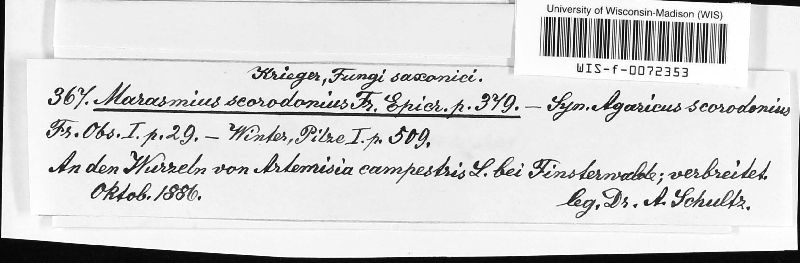 University of Wisconsin-Madison (WIS)
WIS-f-0072353
Krieger, Fungi saxonici.
367. Marasmius scorodonius Fr. Epicr. p. 379. – Syn. Agaricus scorodonius
Fr. Obs. I. p. 29. – Winter, Pilze I. p. 509.
An den Wurzeln von Artemisia campestris L. bei Finsterwalde; verbreitet.
Oktob. 1886. leg. Dr. A. Schultz.